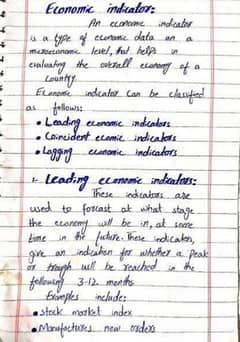 Economic indicator:
An economic indicator
is a type of economic data on a
microeconomic level, that helps in
evaluating the overall economy of a
Country.
Economic indicator can be classified
as follows:
• Leading economic indicators
• Coincident ecomic indicators
• Lagging economic indicators
1- Leading economic indicators:
These indicators are
used to forcast at what stage
the economy will be in, at some
time in the future. These indicators,
give an indication for whether a peak
or trough will be reached in the
following 3-12 months
Examples include:
• Stock market index
• Manufactures new orders